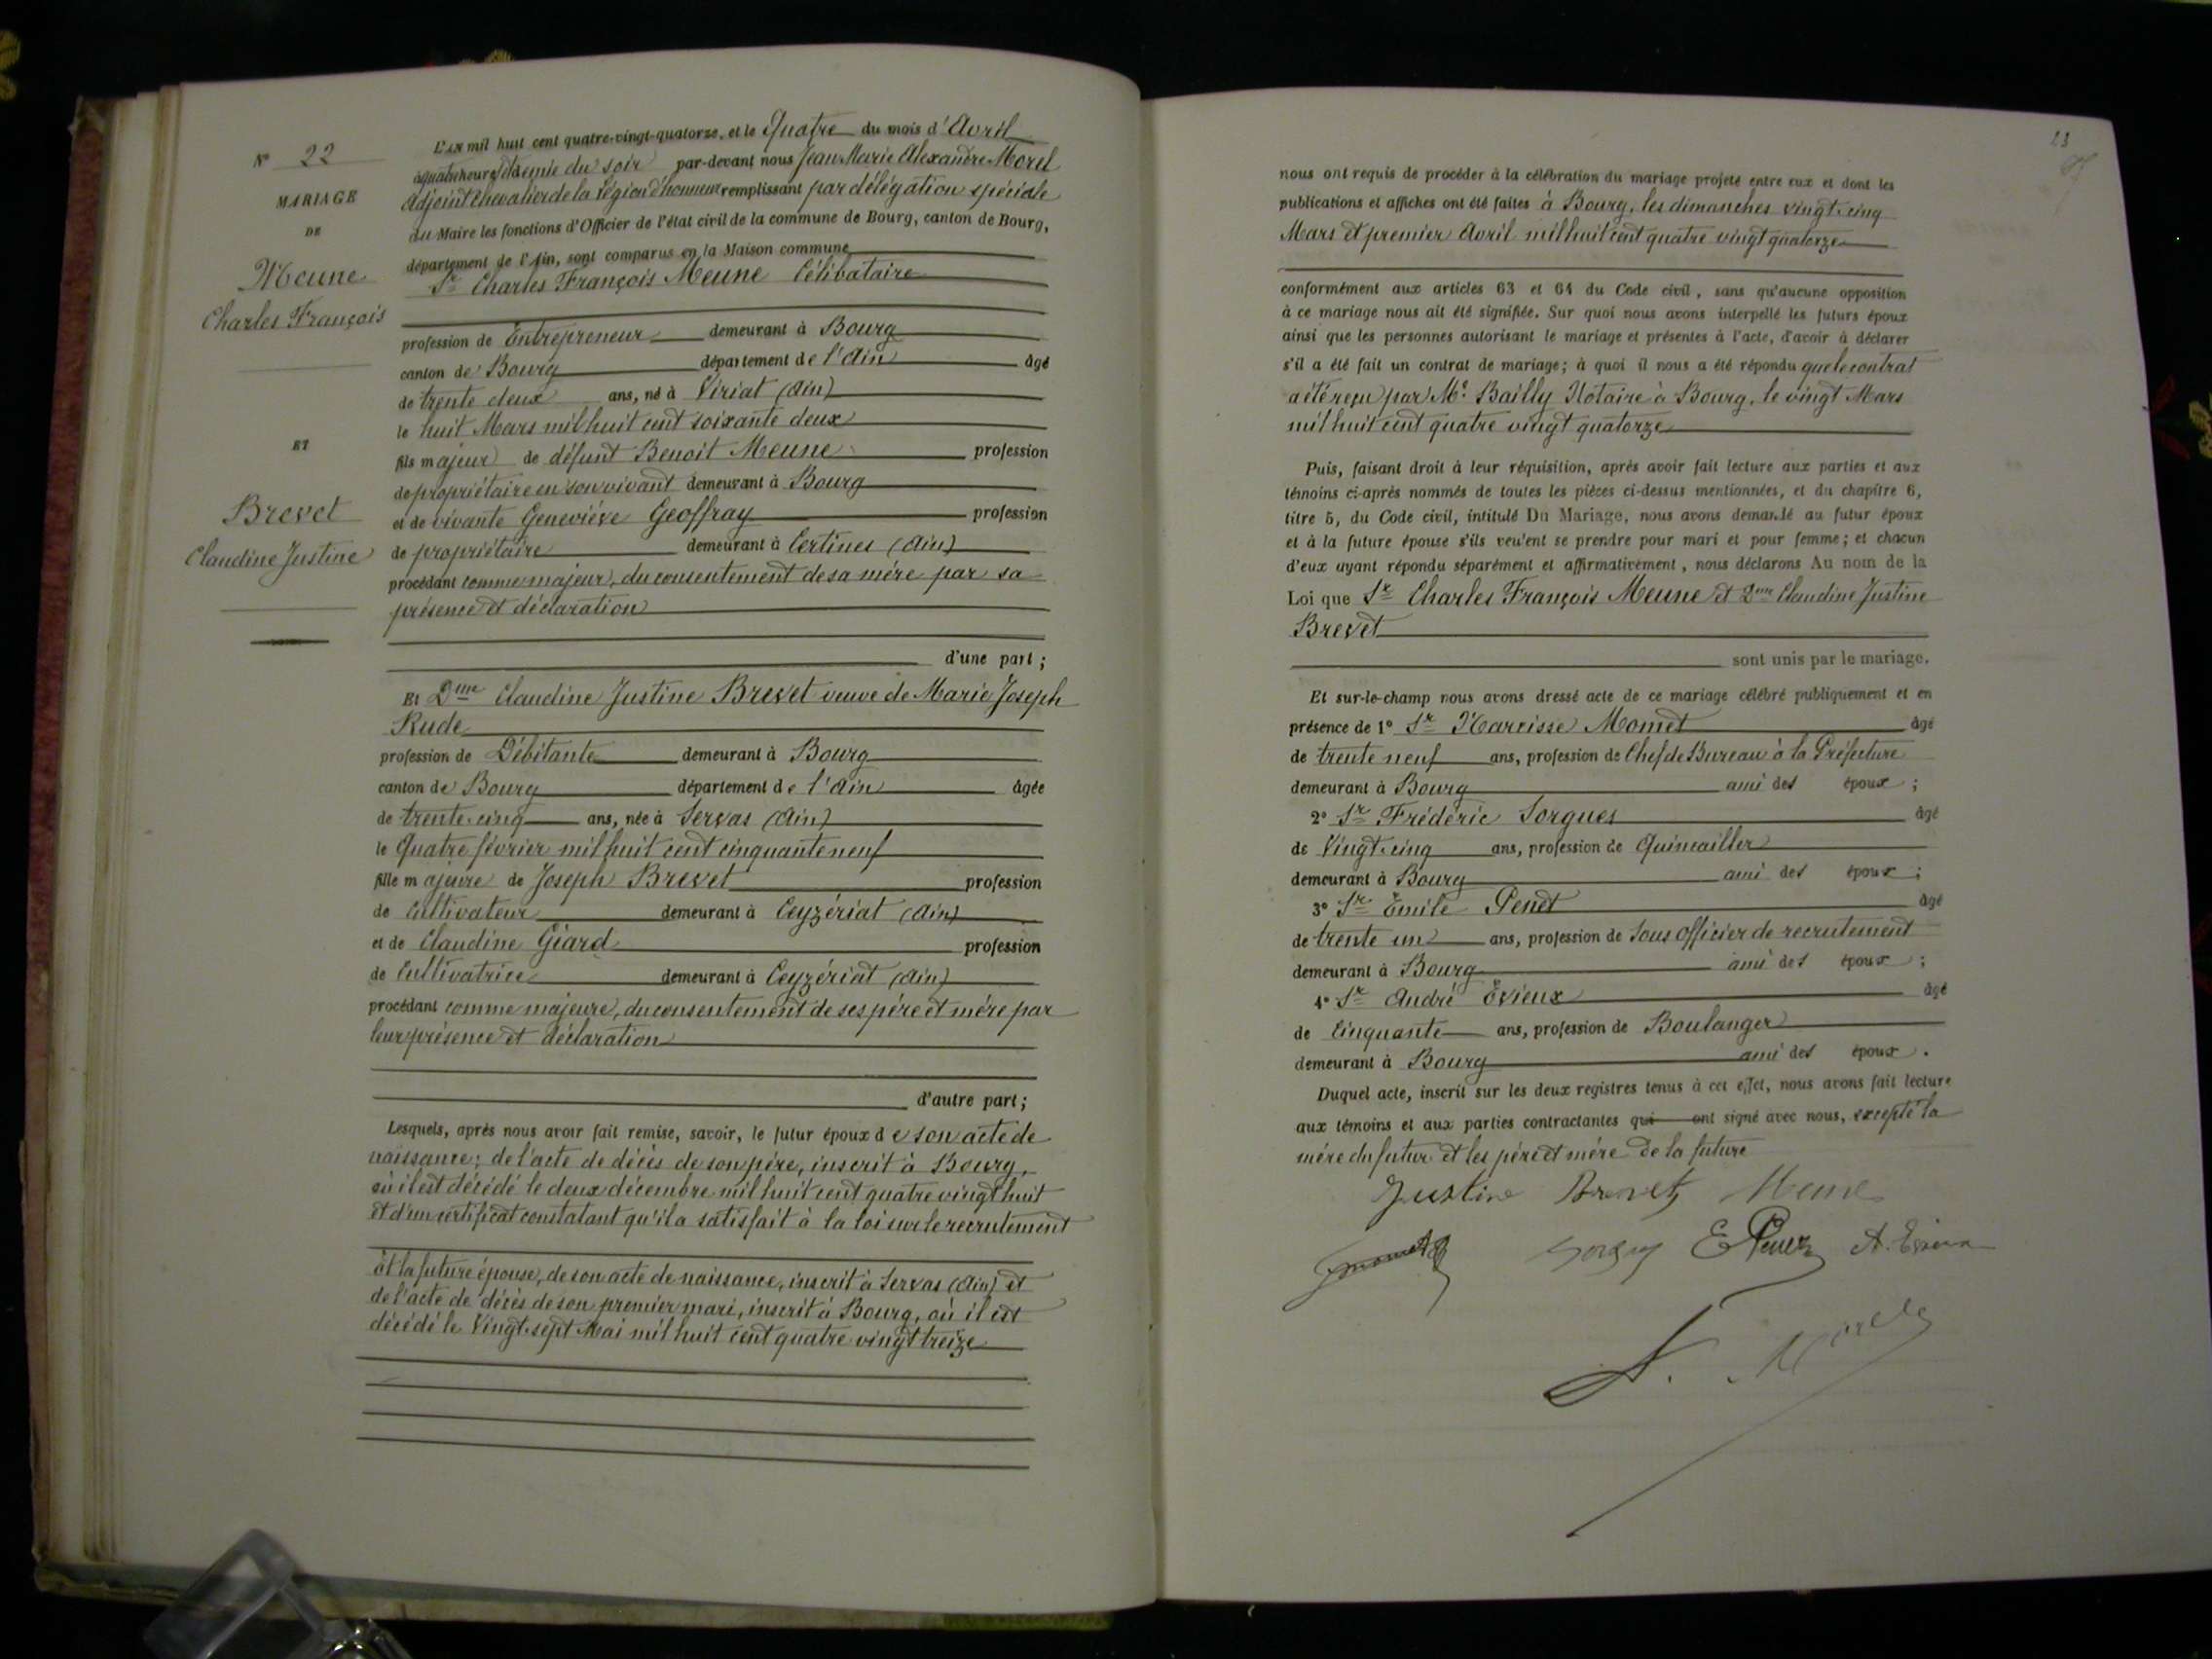 N° 22
MARIAGE
DE
Meune
Charles François
ET
Brevet
Claudine Justine
L'AN mil huit cent quatre-vingt-quatorze, et le Quatre du mois d'Avril
à quatre heures & demie du soir par-devant nous Jean Marie Alexandre Morel
Adjoint Chevalier de la Légion d'honneur remplissant par délégation spéciale
du Maire les fonctions d'Officier de l'état civil de la commune de Bourg, canton de Bourg,
département de l'Ain, sont comparus en la Maison commune
Sr Charles François Meune Célibataire
profession de Entrepreneur demeurant à Bourg
canton de Bourg département de l'Ain âgé
de trente deux ans, né à Viriat (Ain)
le huit Mars mil huit cent soixante deux
fils majeur de défunt Benoit Meune profession
de propriétaire en son vivant demeurant à Bourg
et de vivante Geneviève Geoffray profession
de propriétaire demeurant à Certines (Ain)
procédant comme majeur, du consentement de sa mére par sa
présence et déclaration
d'une part ;
Et Dme Claudine Justine Brevet veuve de Marie Joseph
Rude
profession de Débitante demeurant à Bourg
canton de Bourg département de l'Ain âgée
de trente-cinq ans, née à Servas (Ain)
le Quatre février mil huit cent cinquante neuf
fille majeure de Joseph Brevet profession
de Cultivateur demeurant à Ceyzériat (Ain)
et de Claudine Giard profession
de Cultivatrice demeurant à Ceyzériat (Ain)
procédant comme majeure, du consentement de ses pére et mére par
leur présence et déclaration
d'autre part ;
Lesquels, après nous avoir fait remise, savoir, le futur époux de son acte de
naissance ; de l'acte de décès de son pére, inscrit à Bourg,
où il est décédé le deux décembre mil huit cent quatre vingt huit
et d'un certificat constatant qu'il a satisfait à la loi sur le recrutement
Et la future épouse, de son acte de naissance, inscrit à Servas (Ain) et
de l'acte de décès de son premier mari, inscrit à Bourg, où il est
décédé le Vingt-sept Mai mil huit cent quatre vingt treize
23
nous ont requis de procéder à la célébration du mariage projeté entre eux et dont les
publications et affiches ont été faites à Bourg, les dimanches vingt-cinq
Mars et premier Avril mil huit cent quatre vingt quatorze
conformément aux articles 63 et 64 du Code civil, sans qu'aucune opposition
à ce mariage nous ait été signifiée. Sur quoi nous avons interpellé les futurs époux
ainsi que les personnes autorisant le mariage et présentes à l'acte, d'avoir à déclarer
s'il a été fait un contrat de mariage ; à quoi il nous a été répondu que le contrat
a été reçu par Me Bailly Notaire à Bourg, le vingt Mars
mil huit cent quatre vingt quatorze
Puis, faisant droit à leur réquisition, après avoir fait lecture aux parties et aux
témoins ci-après nommés de toutes les pièces ci-dessus mentionnées, et du chapitre 6,
titre 5, du Code civil, intitulé Du Mariage, nous avons demandé au futur époux
et à la future épouse s'ils veulent se prendre pour mari et pour femme ; et chacun
d'eux ayant répondu séparément et affirmativement, nous déclarons Au nom de la
Loi que Sr Charles François Meune et Dme Claudine Justine
Brevet
sont unis par le mariage.
Et sur-le-champ nous avons dressé acte de ce mariage célébré publiquement et en
présence de 1° Sr Narcisse Momet âgé
de trente neuf ans, profession de Chef de Bureau à la Préfecture
demeurant à Bourg ami des époux ;
2° Sr Frédéric Sorgues âgé
de Vingt-cinq ans, profession de Quincailler
demeurant à Bourg ami des époux ;
3° Sr Émile Penet âgé
de trente un ans, profession de Sous Officier de recrutement
demeurant à Bourg ami des époux ;
4° Sr André Évieux âgé
de Cinquante ans, profession de Boulanger
demeurant à Bourg ami des époux.
Duquel acte, inscrit sur les deux registres tenus à cet effet, nous avons fait lecture
aux témoins et aux parties contractantes qui ont signé avec nous, excepté la
mére du futur et les pére et mére de la future
Justine Brevet Meune
Momet Sorgues E Penet A. Evieux
A. Morel